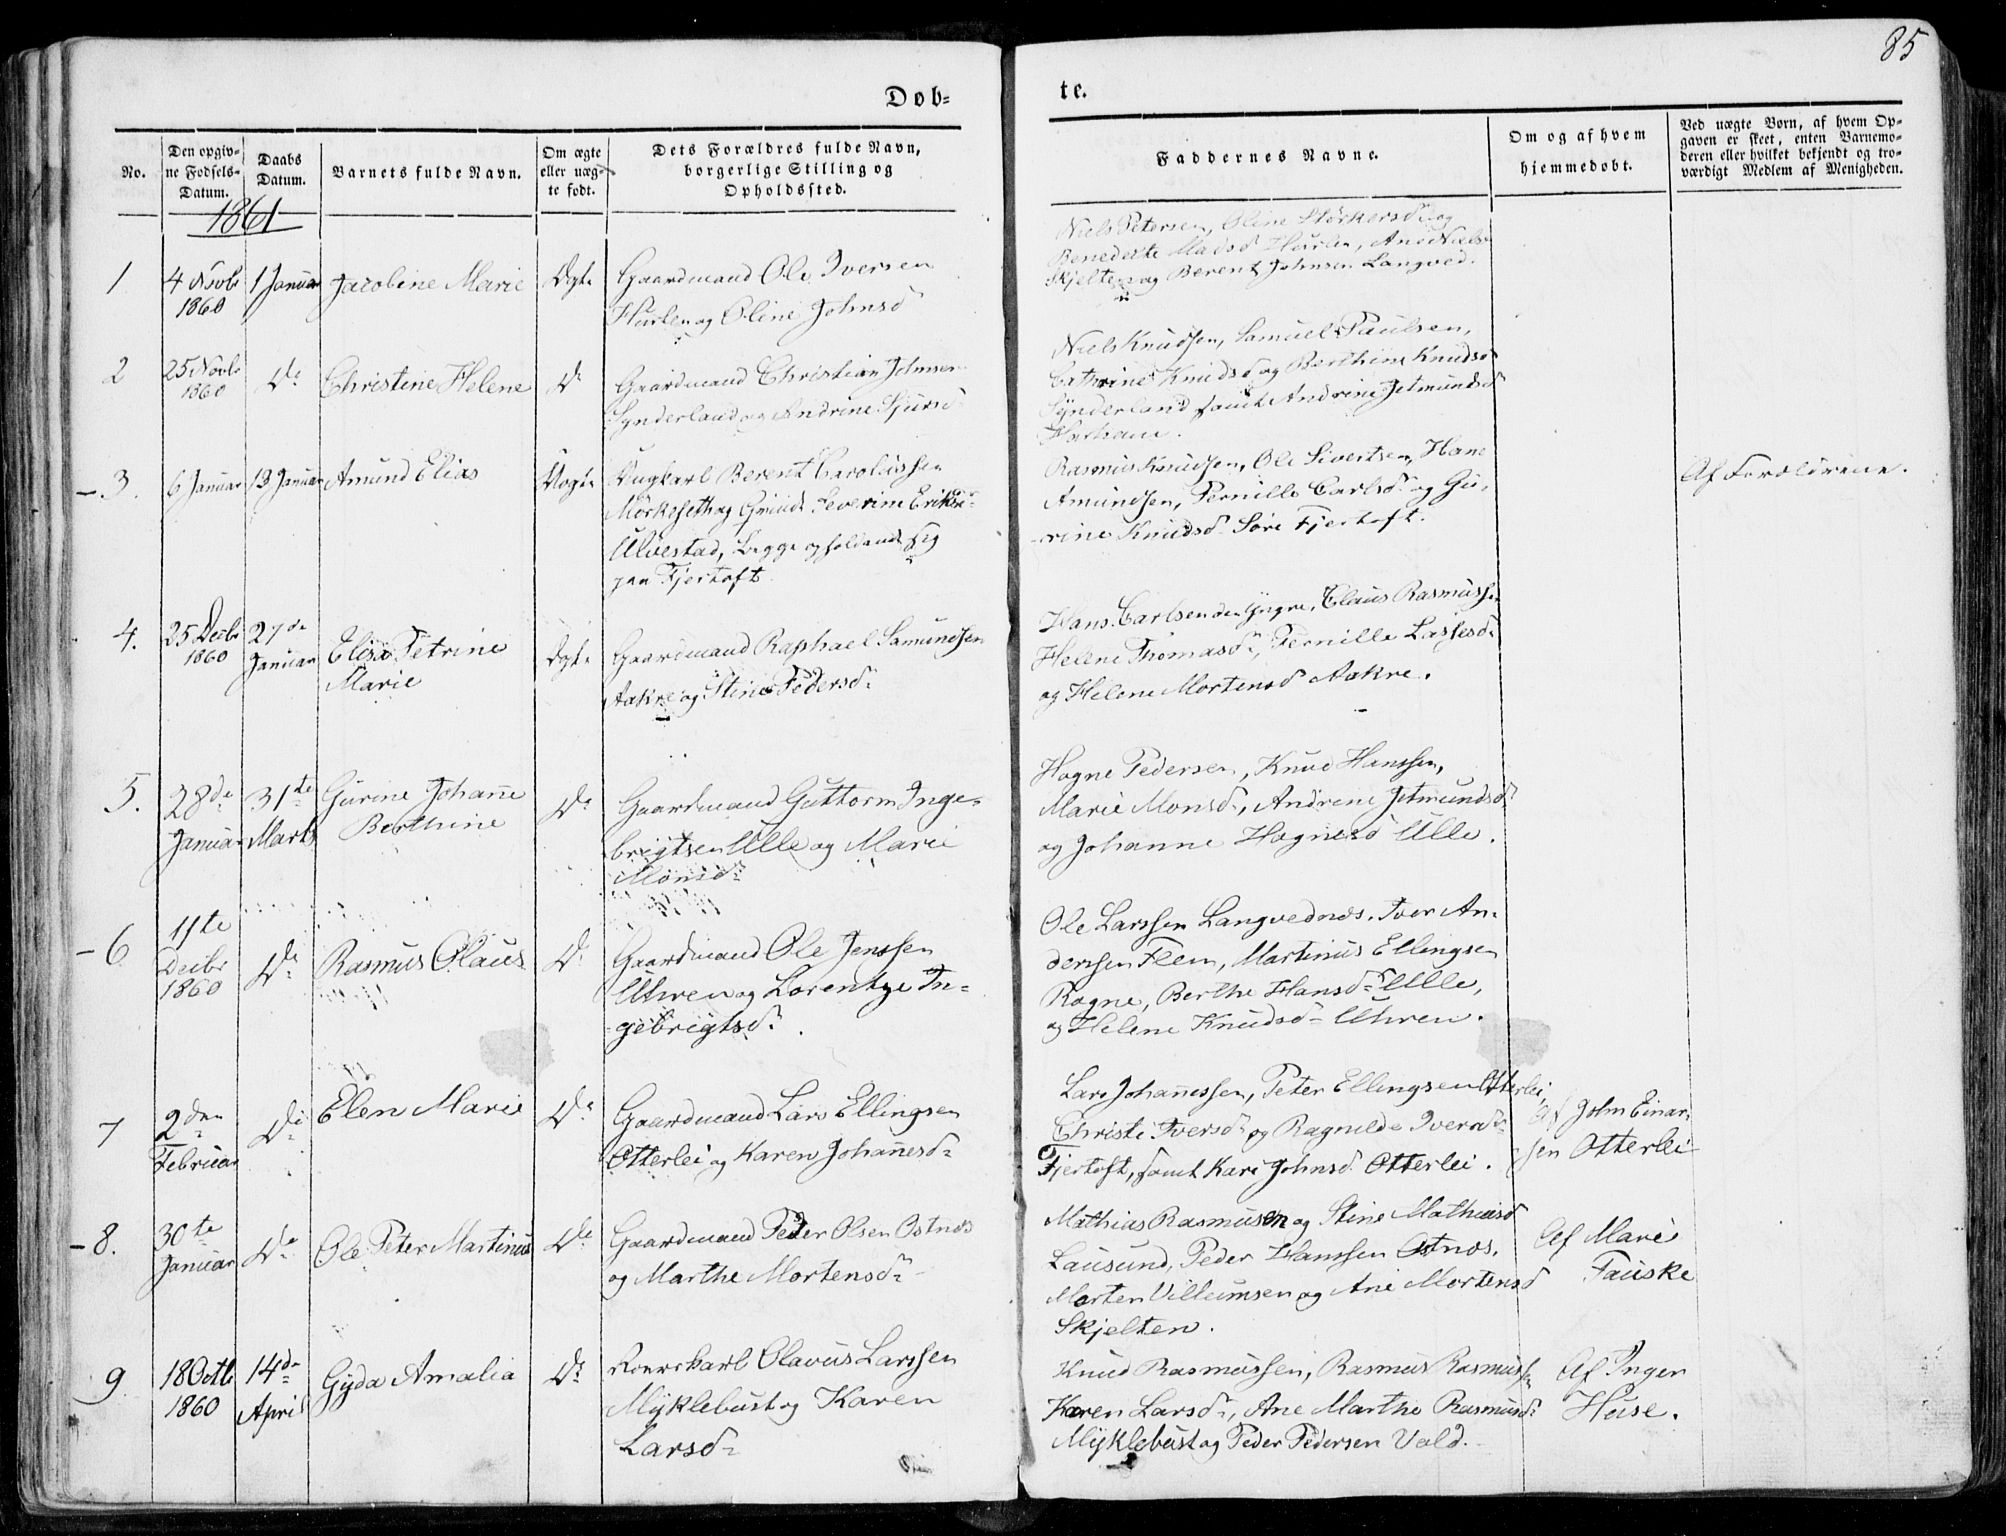 85
Døb=
te.
No.
Den opgiv=
ne Fødsels=
Datum.
Daabs
Datum.
Barnets fulde Navn.
Om ægte
eller uæg=
te født.
Dets Forældres fulde Navn,
borgerlige Stilling og
Opholdssted.
Faddernes Navne.
Om og af hvem
hjemmedøbt.
Ved uægte Børn, af hvem Op=
gaven er skeet, enten Barnemo=
deren eller hvilket bekjendt og tro=
værdigt Medlem af Menigheden.
1861
1
4 Novbr
1860
1 Januar
Jacobine Marie
Ægte
Gaardmand Ole Iversen
Hurlen og Oline Johnsd
Niels Petersen, Oline Störkersd. og
Benedicte Madsd Hurlen, Ane Niels
Skjelten og Berent Johnsen Langved.
2
25 Novbr
1860
Do
Christine Helene
Do
Gaardmand Christian Jetmsen
Synderland og Andrine Sjursd
Niels Knudsen, Samuel Paulsen,
Cathrine Knudsd og Berthine Knudsd
Synderland samt Andrine Jetmundsd
Harham.
3.
6 Januar
13 Januar
Amund Elias
Uægte
Ungkarl Berent Carolussen
Mörkeseth og Severine Eriksd
Ulvestad, begge opholdende sig
paa Fjertoft.
Rasmus Knudsen, Ole Sivertsen, Hans
Amundsen, Pernille Carlsd. og Gu-
rine Knudsd Söre Fjertoft.
Af Forældrene.
4.
25 Decbr
1860
27de
Januar
Elisa Petrine
Marie
Ægte
Gaardmand Raphael Samundsen
Aakre og Stine Pedersd.
Hans Carlsen den Yngre, Claus Rasmussen
Helene Thomasd., Pernille Lassesd.
og Helene Mortensd Aakre.
5.
28de
Januar
31te
Marts
Gurine Johañe
Berthine
Do
Gaardmand Guttorm Inge-
brigtsen Ulle og Marie
Monsd.
Hogne Pedersen, Knud Hanssen,
Marie Monsd., Andrine Jetmundsd.
og Johanne Hognesd Ulle.
6
11te
Decbr
1860
Do
Rasmus Olaus
Do
Gaardmand Ole Jenssen
Uhren og Lorentze In-
gebrigtsd.
Ole Larssen Langvednæs, Iver An-
derssen Flem, Martinus Ellingsen
Rogne, Berthe Hansd. Ulle,
og Helene Knudsd. Uhren.
7
2den
Februar
Do
Elen Marie
Do
Gaardmand Lars Ellingsen
Otterlei og Karen Johañesd.
Lars Johañessen, Peter Ellingsen Otterlei,
Christi Iversd. og Ragnilde Iversd.
Fjertoft, samt Kari Johnsd. Otterlei.
Af John Einar-
sen Otterlei
8.
30te
Januar
Do
Ole Peter Martinus
Do
Gaardmand Peder Olsen Ostnæs
og Marthe Mortensd.
Mathias Rasmusen og Stine Mathiasd
Lausund, Peder Hanssen Ostnæs,
Morten Villumsen og Ane Mortensd
Skjelten.
Af Marie
Fauske
9
18 Octb
1860
14de
April
Gyda Amalia
Do
Roerskarl Olavus Larssen
Myklebust og Karen
Larsd.
Knud Rasmussen, Rasmus Rasmussen
Karen Larsd., Ane Marthe Rasmusd.
Myklebust og Peder Pedersen Vold.
Af Inger
Huse.